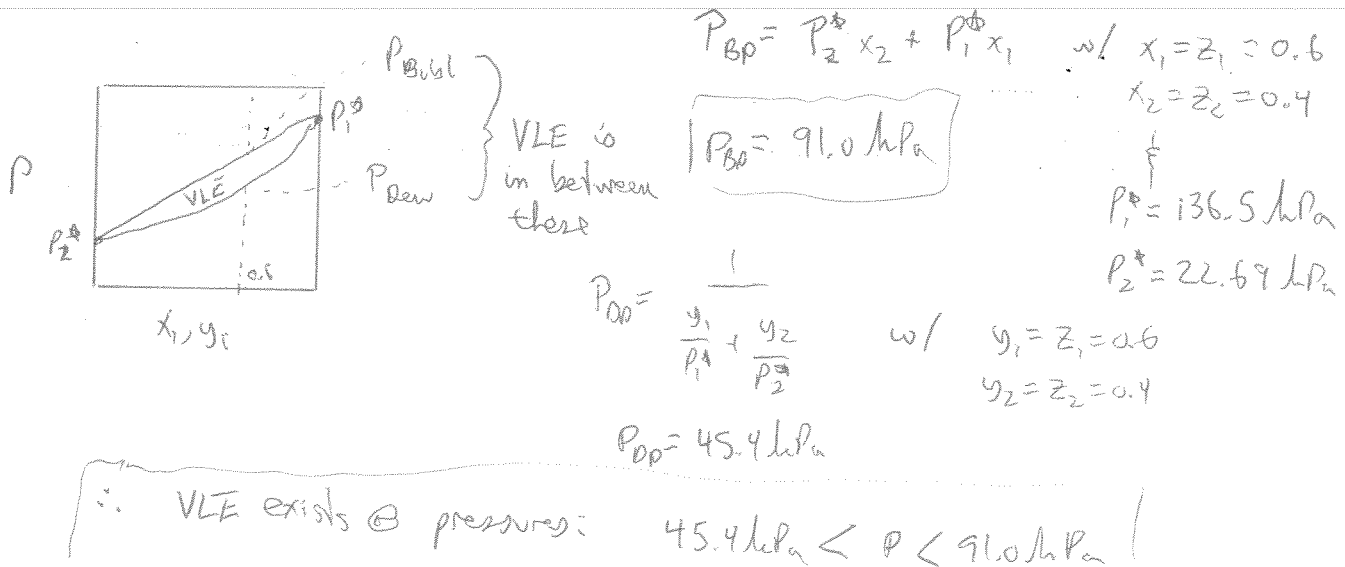 P
P_Bubl
P_Dew
P₁*
P₂*
VLE
0.6
x₁, y₁
VLE is
in between
these
P_BP = P₂* x₂ + P₁* x₁ w/ x₁ = z₁ = 0.6
x₂ = z₂ = 0.4
P_BP = 91.0 hPa
&
P₁* = 136.5 hPa
P₂* = 22.69 hPa
P_DP = 1 / (y₁/P₁* + y₂/P₂*) w/ y₁ = z₁ = 0.6
y₂ = z₂ = 0.4
P_DP = 45.4 hPa
∴ VLE exists @ pressures: 45.4 hPa < P < 91.0 hPa